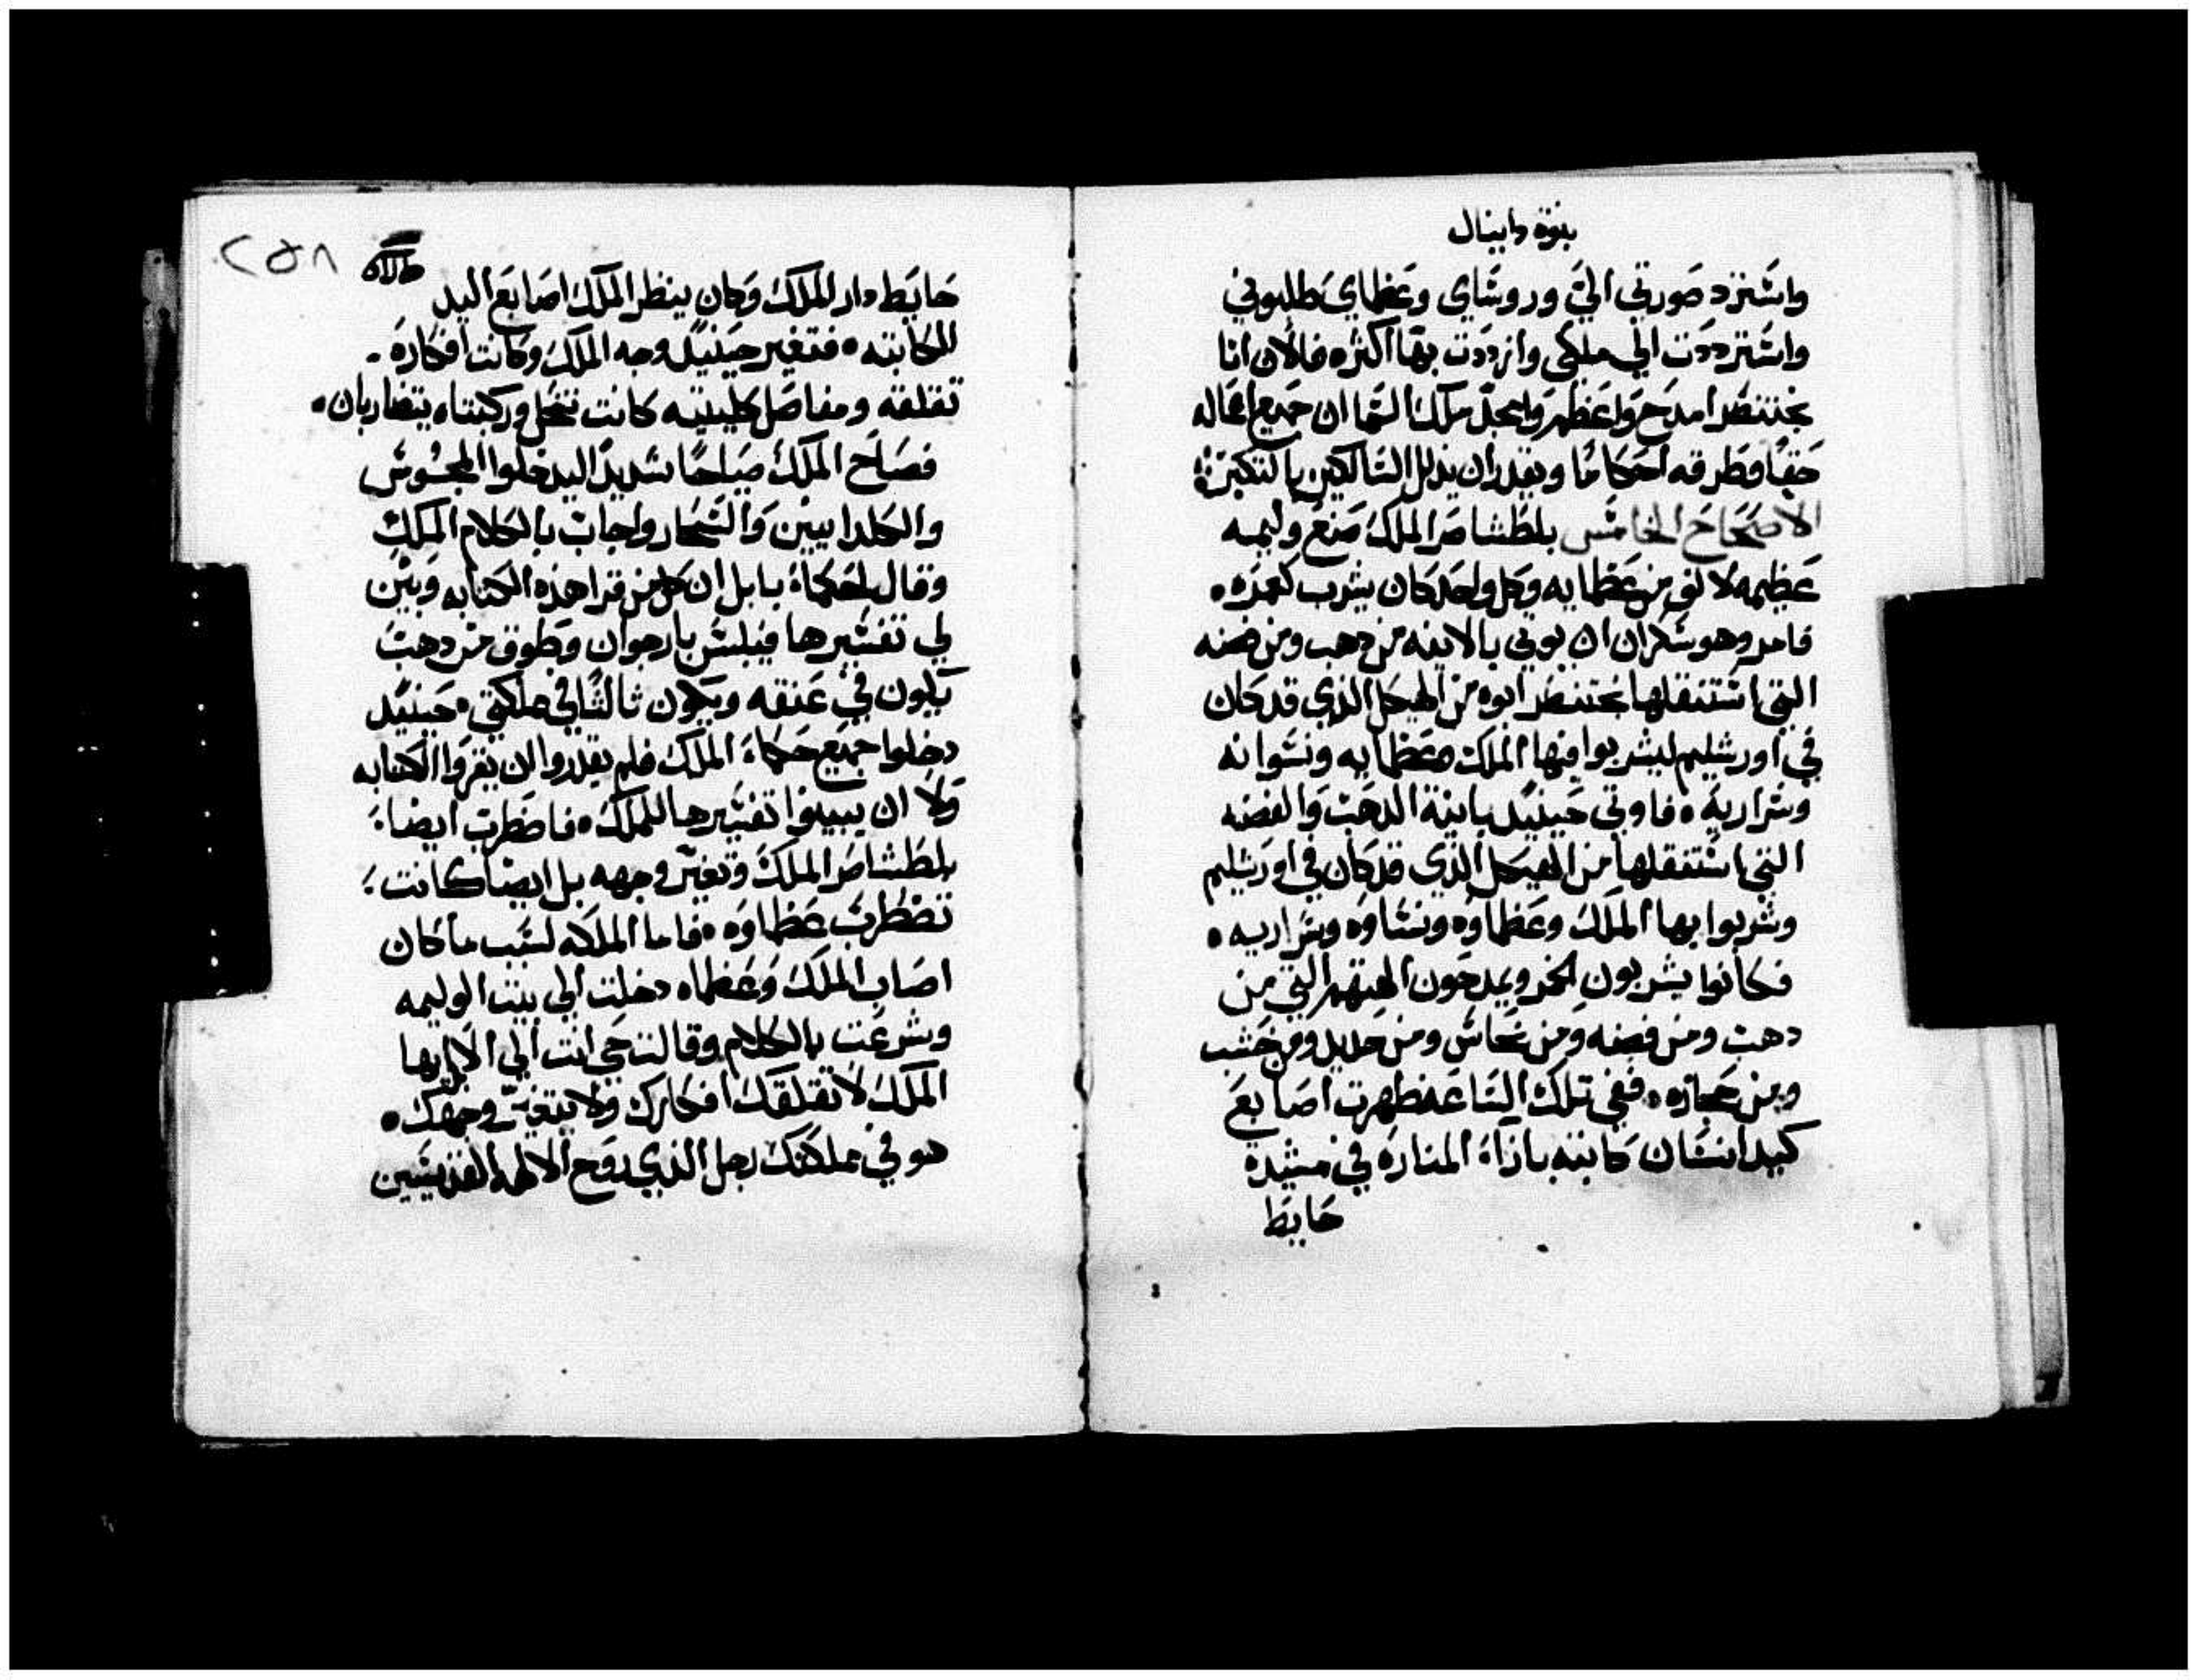 بنوة دانيال
واسترد صورتي اليّ وروساي وعظماي طلبوني
واسترددت الي ملكي وازددت بها اكثر ه فالان انا
بختنصر امدح واعظم وامجد ملك السما ان جميع اعماله
حقا وطرقه احكاما ويقدر ان يذلل السالكين بالتكبر
الاصحاح الخامس بلطشاصر الملك صنع وليمه
عظيمه لالف من عظمايه وكل واحد كان يشرب كعمره ه
فامر وهو سكران ان يوتي بالانيه من دهب ومن فضه
التي استنقلها بختنصر ابوه من الهيكل الذي قد كان
في اورشليم ليشربوا فيها الملك وعظمايه ونسوانه
وسراريه ه فاوتي حينيد بانية الدهب والفضه
التي استنقلها من الهيكل الذي قد كان في اورشليم
وشربوا بها الملك وعظماوه ونساوه وسراريه ه
فكانوا يشربون الخمر ويمدحون الهتهم التي من
دهب ومن فضه ومن نحاس ومن حديد ومن خشب
ومن حجاره ه ففي تلك الساعه ظهرت اصابع
كيد انسان كاتبه بازاء المناره في مشيدة
حايط
٢٥٨
حايط دار الملك وكان ينظر الملك اصابع اليد
الكاتبه ه فتغير حينيد وجه الملك وكانت افكاره
تقلقه ومفاصل كليتيه كانت تنحل وركبتاه يتضاربان ه
فصاح الملك صياحا شديدا ليدخلوا المجوس
والكلدانيين والسحار واجاب بالكلام الملك
وقال لحكماء بابل ان كل من قرا هذه الكتابه وبين
لي تفسيرها فيلبس بارجوان وطوق من دهب
يكون في عنقه ويكون ثالثا في مملكتي ه حينيد
دخلوا جميع حكماء الملك فلم يقدروا ان يقروا الكتابه
ولا ان يبينوا تفسيرها للملك ه فاضطرب ايضا
بلطشاصر الملك وتغير وجهه بل ايضا كانت
تضطرب عظماوه ه فاما الملكه لسبب ما كان
اصاب الملك وعظماه دخلت الي بيت الوليمه
وشرعت بالكلام وقالت حي انت الي الابد ايها
الملك لا تقلقك افكارك ولا يتغير وجهك ه
هو في مملكتك رجل الذي روح الالهه القديسين